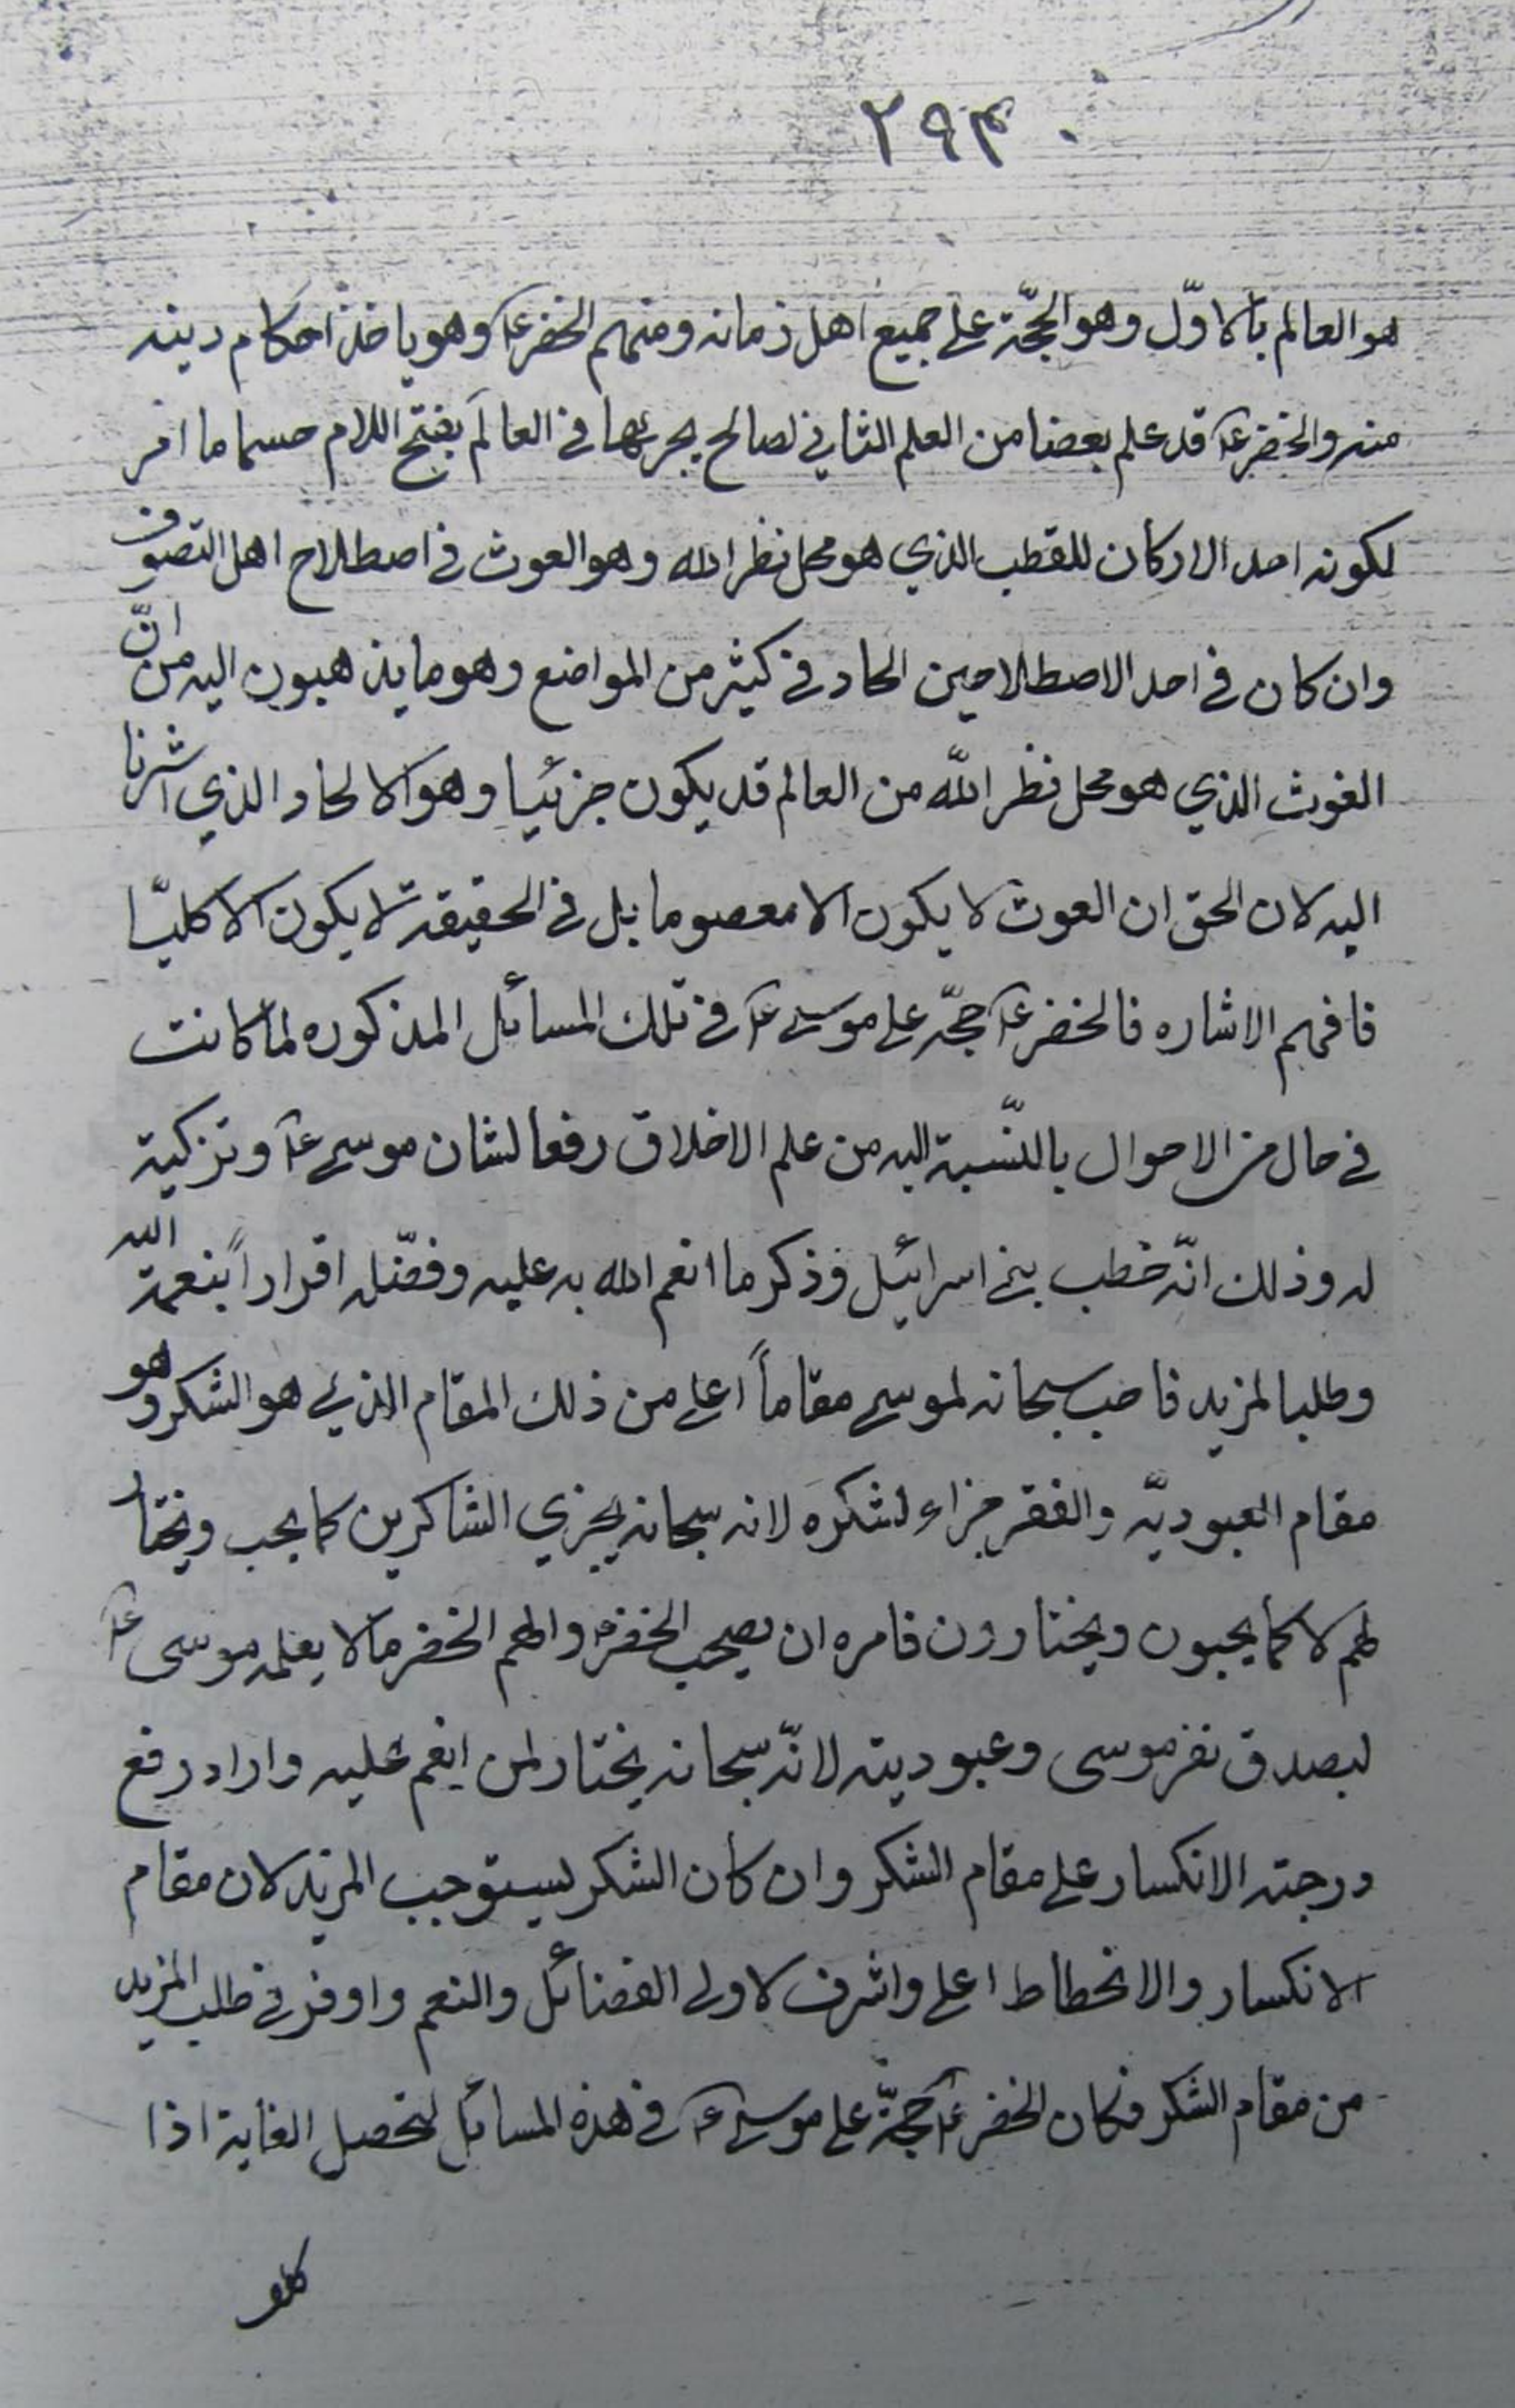 ٢٩٣
هو العالم بالاوّل وهو الحجّة على جميع اهل زمانه ومنهم الخضر ع وهو ياخذ احكام دينه
منه والخضر ع قد علم بعضا من العلم الثاني لصالح يجريها في العالَم بفتح اللام حسما ما امر
لكونه احد الاركان للقطب الذي هو محل نظر الله وهو الغوث في اصطلاح اهل التصوف
وان كان في احد الاصطلاحين الحاد في كثير من المواضع وهو ما يذهبون اليه من انّ
الغوث الذي هو محل نظر اللّه من العالم قد يكون جزئيا وهو الالحاد الذي اشرنا
اليه لان الحق ان الغوث لا يكون الا معصوما بل في الحقيقة لا يكون الا كليّا
فافهم الاشاره فالخضر ع حجّة على موسى ع في تلك المسائل المذكوره لما كانت
في حال من الاحوال بالنّسبة اليه من علم الاخلاق رفعا لشان موسى ع وتزكية
له وذلك انّه خطب بني اسرائيل وذكر ما انعم الله به عليه وفضّله اقراراً بنعمة الله
وطلبا لمزيد فاحب سبحانه لموسى مقاماً اعلى من ذلك المقام الذي هو الشكر وهو
مقام العبوديّه والفقر جزاء لشكره لانه سبحانه يجزي الشاكرين كما يحب ويختار
لهم لا كما يحبون ويختارون فامره ان يصحب الخضر ع والهم الخضر ما لا يعلمه موسى ع
ليصدق نفر موسى وعبوديته لانّه سبحانه يختار لمن انعم عليه واراد رفع
درجته الانكسار على مقام الشكر وان كان الشكر يستوجب المزيد لان مقام
الانكسار والانحطاط اعلى واشرف لاولى الفضائل والنعم واوفر في طلب المزيد
من مقام الشكر فكان الخضر ع حجّة على موسى ع في هذه المسائل لتحصل الغاية اذا